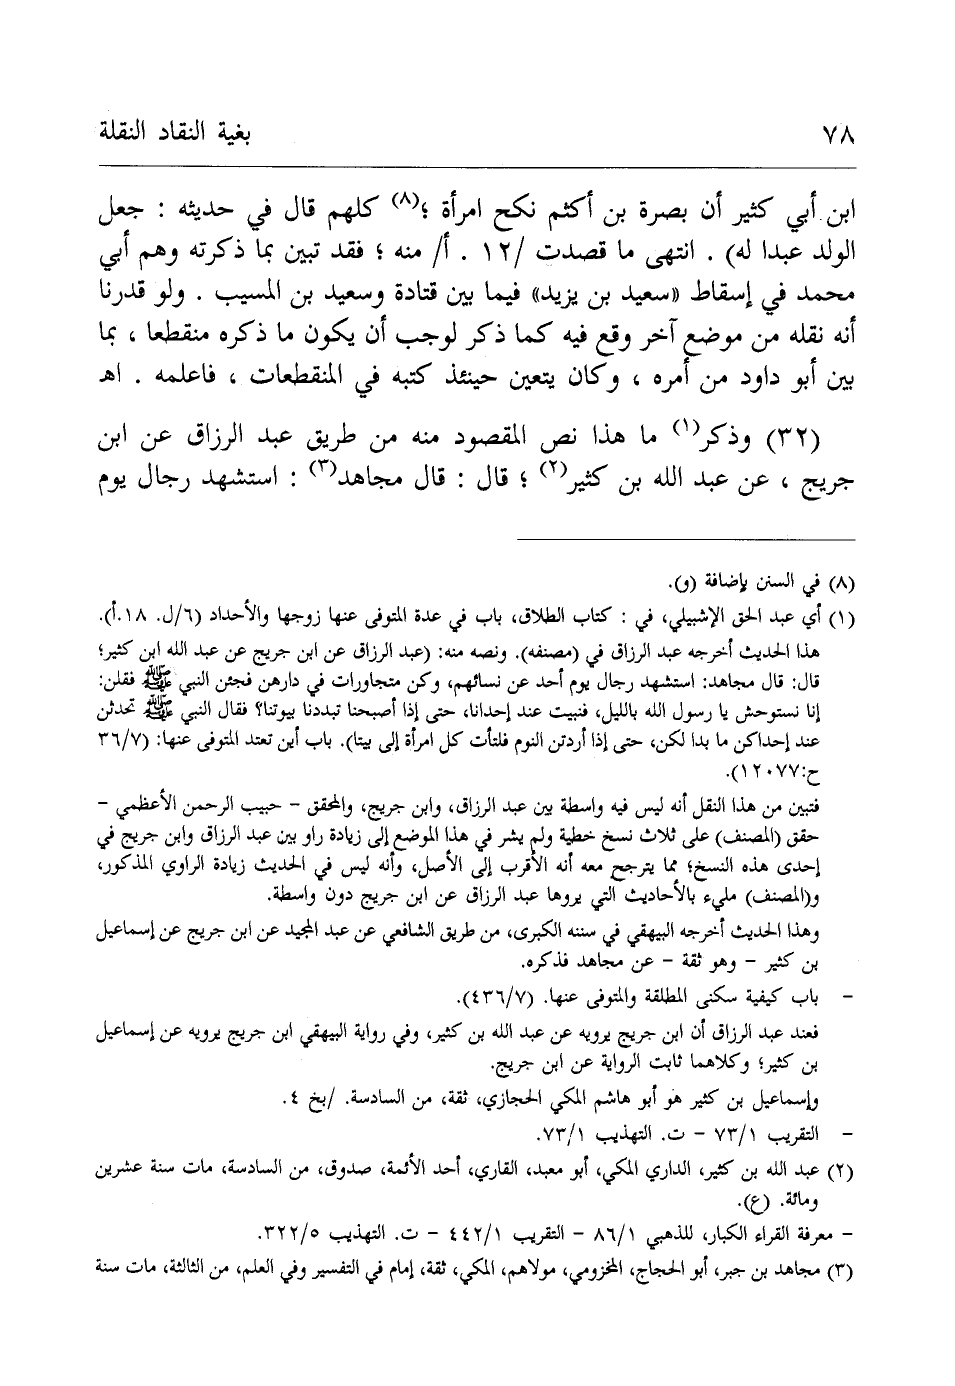 ٧٨ بغية النقاد النقلة
ابن أبي كثير أن بصرة بن أكثم نكح امرأة ؛(٨) كلهم قال في حديثه : جعل
الولد عبدا له) . انتهى ما قصدت /١٢ . أ/ منه ؛ فقد تبين بما ذكرته وهم أبي
محمد في إسقاط «سعيد بن يزيد» فيما بين قتادة وسعيد بن المسيب . ولو قدرنا
أنه نقله من موضع آخر وقع فيه كما ذكر لوجب أن يكون ما ذكره منقطعا ، بما
بين أبو داود من أمره ، وكان يتعين حينئذ كتبه في المنقطعات ، فاعلمه . اهـ
(٣٢) وذكر(١) ما هذا نص المقصود منه من طريق عبد الرزاق عن ابن
جريج ، عن عبد الله بن كثير(٢) ؛ قال : قال مجاهد(٣) : استشهد رجال يوم
(٨) في السنن بإضافة (و).
(١) أي عبد الحق الإشبيلي، في : كتاب الطلاق، باب في عدة المتوفى عنها زوجها والأحداد (٦/ل. ١٨.أ).
هذا الحديث أخرجه عبد الرزاق في (مصنفه). ونصه منه: (عبد الرزاق عن ابن جريج عن عبد الله ابن كثير؛
قال: قال مجاهد: استشهد رجال يوم أحد عن نسائهم، وكن متجاورات في دارهن فجئن النبي ﷺ فقلن:
إنا نستوحش يا رسول الله بالليل، فنبيت عند إحدانا، حتى إذا أصبحنا تبددنا بيوتنا؟ فقال النبي ﷺ تحدثن
عند إحداكن ما بدا لكن، حتى إذا أردتن النوم فلتأت كل امرأة إلى بيتا). باب أين تعتد المتوفى عنها: (٣٦/٧
ح:١٢٠٧٧).
فتبين من هذا النقل أنه ليس فيه واسطة بين عبد الرزاق، وابن جريج، والمحقق - حبيب الرحمن الأعظمي -
حقق (المصنف) على ثلاث نسخ خطية ولم يشر في هذا الموضع إلى زيادة راو بين عبد الرزاق وابن جريج في
إحدى هذه النسخ؛ مما يترجح معه أنه الأقرب إلى الأصل، وأنه ليس في الحديث زيادة الراوي المذكور،
و(المصنف) مليء بالأحاديث التي يروها عبد الرزاق عن ابن جريج دون واسطة.
وهذا الحديث أخرجه البيهقي في سننه الكبرى، من طريق الشافعي عن عبد المجيد عن ابن جريج عن إسماعيل
بن كثير - وهو ثقة - عن مجاهد فذكره.
- باب كيفية سكنى المطلقة والمتوفى عنها. (٤٣٦/٧).
فعند عبد الرزاق أن ابن جريج يرويه عن عبد الله بن كثير، وفي رواية البيهقي ابن جريج يرويه عن إسماعيل
بن كثير؛ وكلاهما ثابت الرواية عن ابن جريج.
وإسماعيل بن كثير هو أبو هاشم المكي الحجازي، ثقة، من السادسة. /بخ ٤.
- التقريب ٧٣/١ - ت. التهذيب ٧٣/١.
(٢) عبد الله بن كثير، الداري المكي، أبو معبد، القاري، أحد الأئمة، صدوق، من السادسة، مات سنة عشرين
ومائة. (ع).
- معرفة القراء الكبار، للذهبي ٨٦/١ - التقريب ٤٤٢/١ - ت. التهذيب ٣٢٢/٥.
(٣) مجاهد بن جبر، أبو الحجاج، المخزومي، مولاهم، المكي، ثقة، إمام في التفسير وفي العلم، من الثالثة، مات سنة